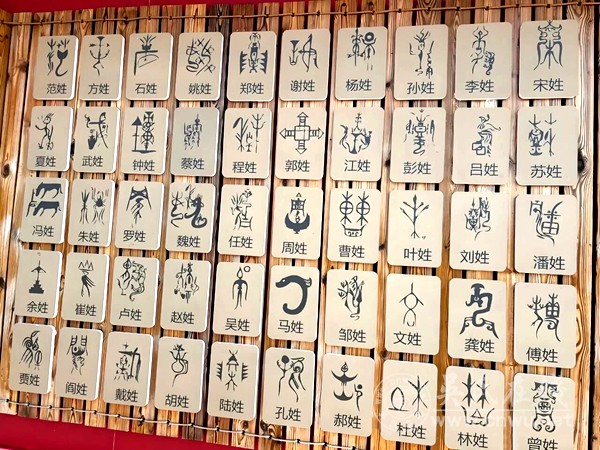 范姓 方姓 石姓 姚姓 郑姓 谢姓 杨姓 孙姓 李姓 宋姓
夏姓 武姓 钟姓 蔡姓 程姓 郭姓 江姓 彭姓 吕姓 苏姓
冯姓 朱姓 罗姓 魏姓 任姓 周姓 曹姓 叶姓 刘姓 潘姓
余姓 崔姓 卢姓 赵姓 吴姓 马姓 邹姓 文姓 龚姓 傅姓
贾姓 阎姓 戴姓 胡姓 陆姓 孔姓 郝姓 杜姓 林姓 曾姓